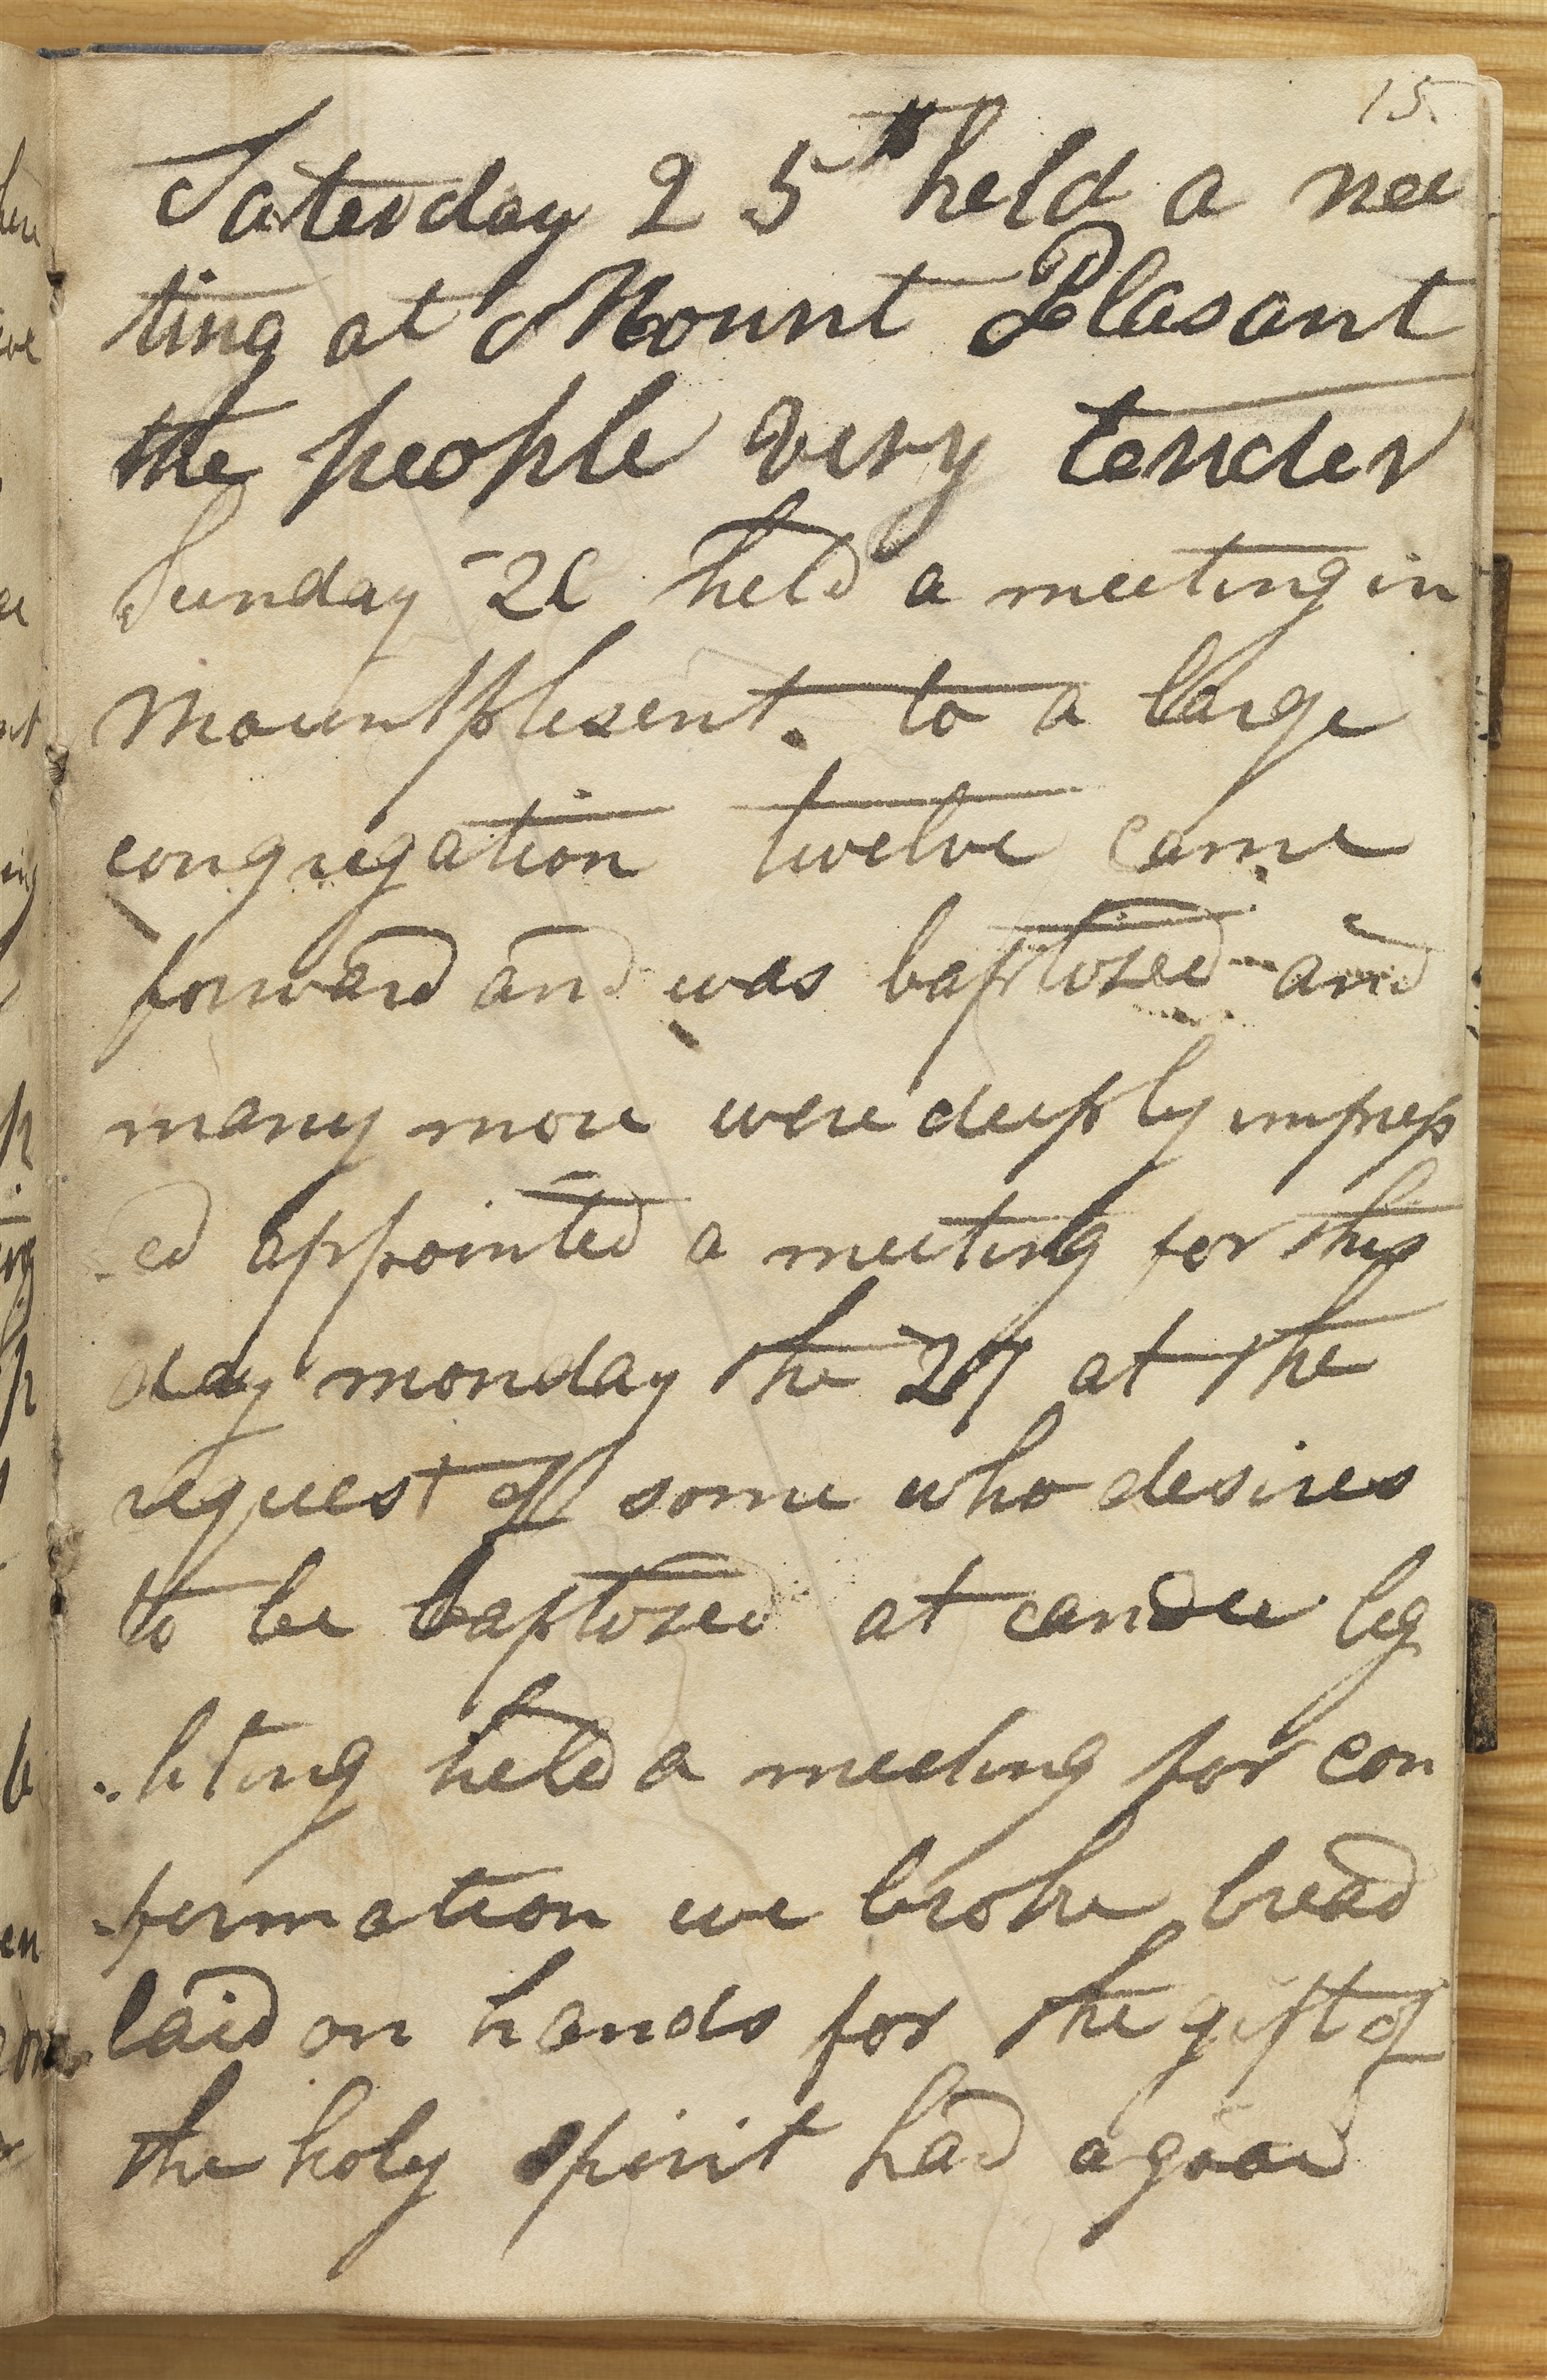 15.
Saterday 25th held a mee
ting at Mount Pleasant
the people very tender
Sunday 26 held a meeting in
Mountplesent. to a large
congregation twelve came
forward and was baptised and
many more were deeply impress
-ed appointed a meeting for this
day monday the 27 at the
request of some who desires
to be baptized at candle lig
-hting held a meeting for con
-firmation we broke bread
laid on hands for the gift of
the holy spirit had a good